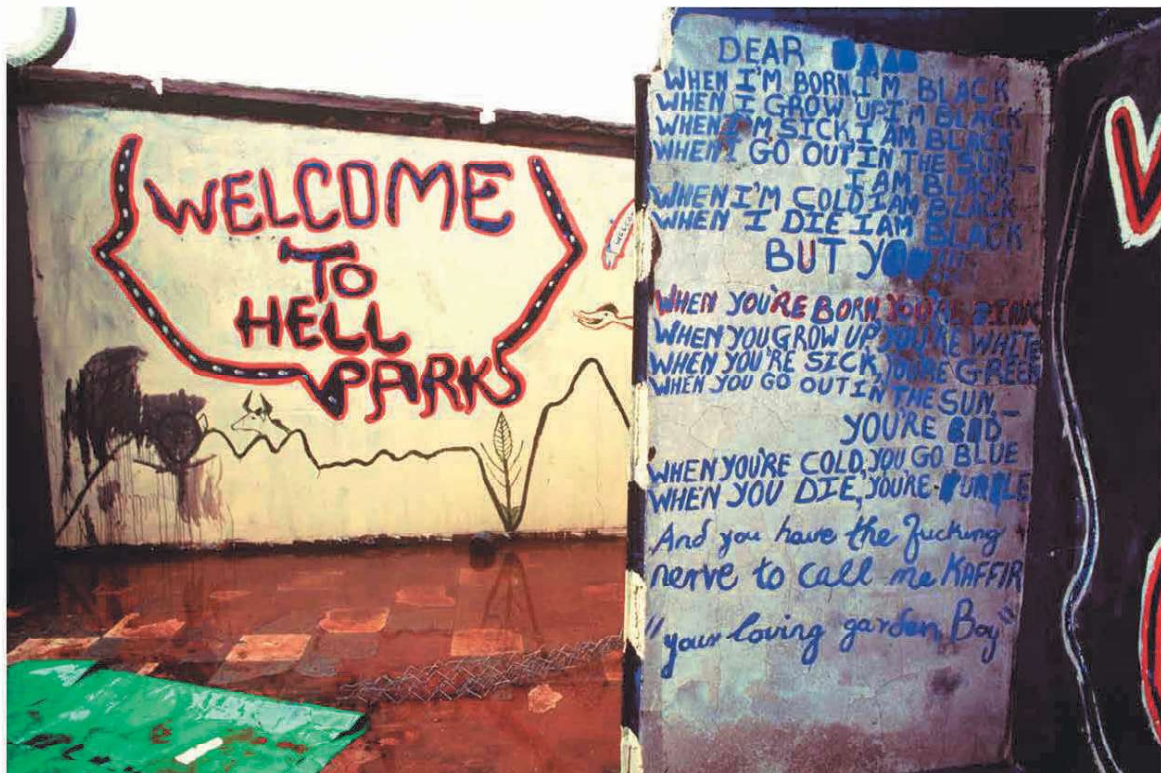 WELCOME
TO
HELL
PARK
DEAR
WHEN I'M BORN, I'M BLACK
WHEN I GROW UP, I'M BLACK
WHEN I'M SICK, I AM BLACK
WHEN I GO OUT IN THE SUN_
I AM BLACK
WHEN I'M COLD, I AM BLACK
WHEN I DIE I AM BLACK
BUT YOU
WHEN YOU'RE BORN, YOU'RE PINK
WHEN YOU GROW UP, YOU'RE WHITE
WHEN YOU'RE SICK, YOU'RE GREEN
WHEN YOU GO OUT IN THE SUN,_
YOU'RE
WHEN YOU'RE COLD, YOU GO BLUE
WHEN YOU DIE, YOU'RE PURPLE
And you have the fucking
nerve to call me KAFFIR
"your loving garden Boy"